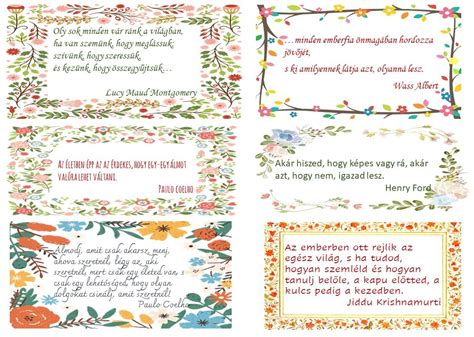 Oly sok minden vár ránk a világban,
ha van szemünk, hogy meglássuk;
szívünk, hogy szeressük
és kezünk, hogy összegyűjtsük…
Lucy Maud Montgomery
…minden emberfia önmagában hordozza
jövőjét,
s ki amilyennek látja azt, olyanná lesz.
Wass Albert
Az életben épp az az érdekes, hogy egy-egy álmot
valóra lehet váltani.
Paulo Coelho
Akár hiszed, hogy képes vagy rá, akár
azt, hogy nem, igazad lesz.
Henry Ford
Álmodj, amit csak akarsz, menj,
ahova szeretnél, légy az, aki
szeretnél, mert csak egy életed van, s
csak egy lehetőséged, hogy olyan
dolgokat csinálj, amit szeretnél.
Paulo Coelho
Az emberben ott rejlik az
egész világ, s ha tudod,
hogyan szemléld és hogyan
tanulj belőle, a kapu előtted, a
kulcs pedig a kezedben.
Jiddu Krishnamurti